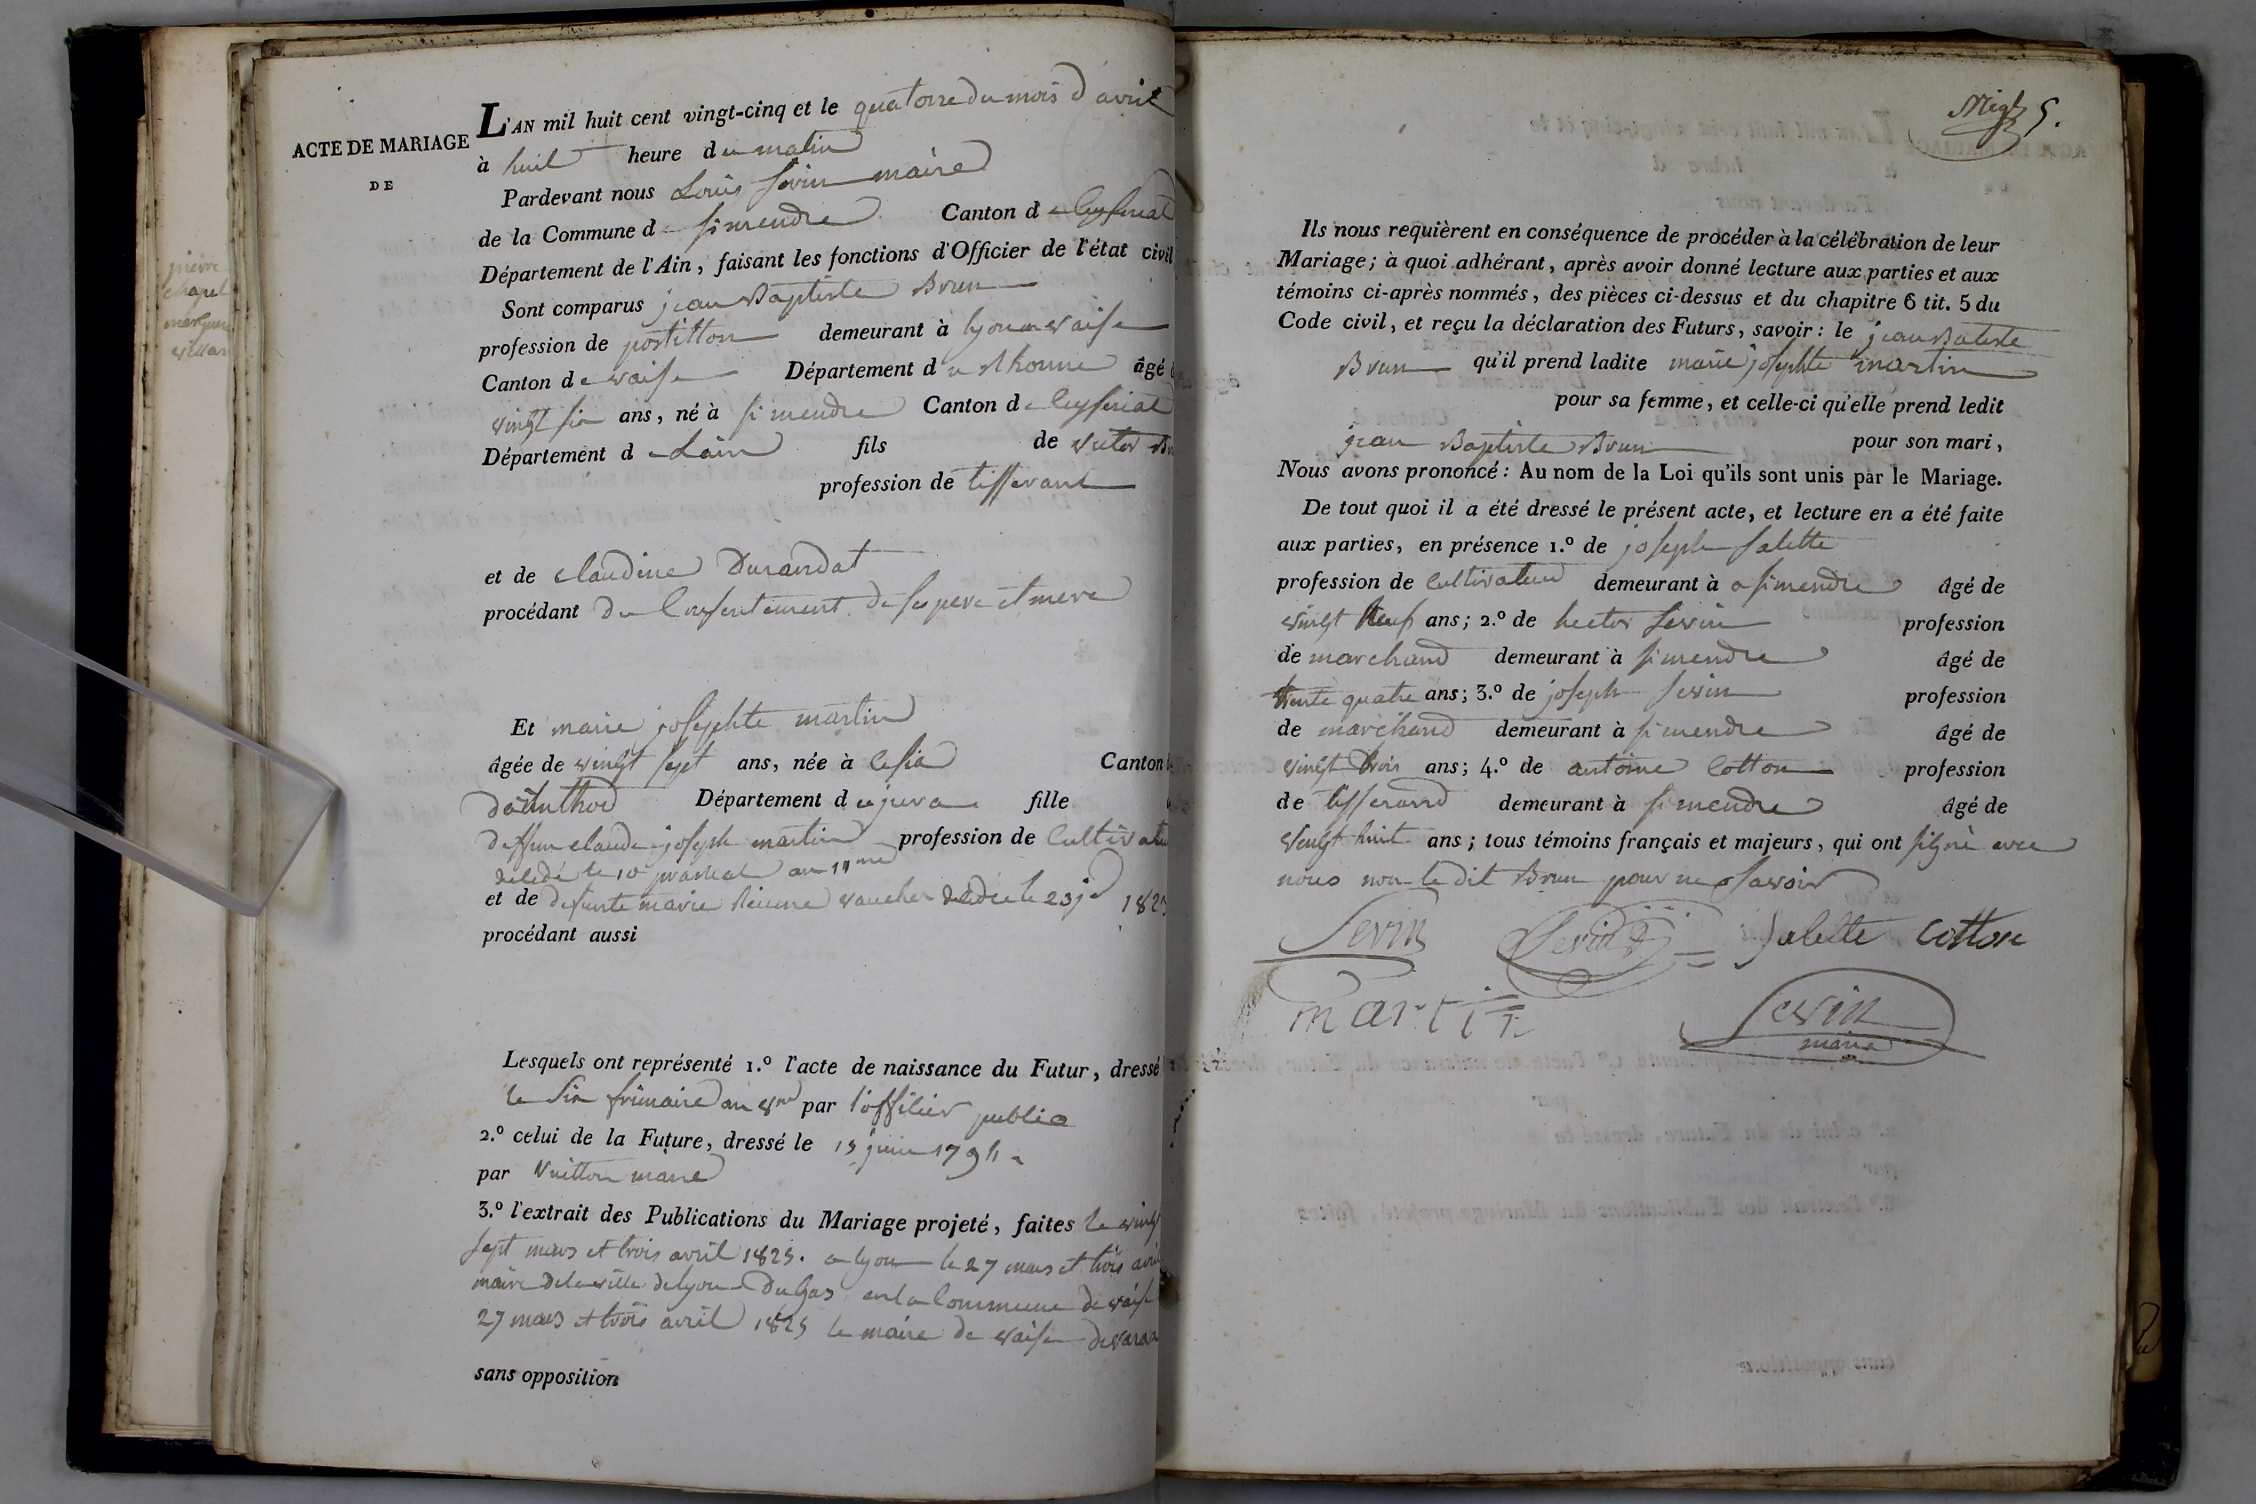 ACTE DE MARIAGE
DE
L'AN mil huit cent vingt-cinq et le quatorze du mois d'avril
à huit heure du matin
Pardevant nous Louis Sevin maire
de la Commune de simendre Canton de Ceyseriat
Département de l'Ain, faisant les fonctions d'Officier de l'état civil
Sont comparus jean Baptiste Brun
profession de postillon demeurant à lyon vaise
Canton de vaise Département du Rhonne âgé
vingt six ans, né à simendre Canton de Ceyseriat
Département de Lain fils de victor
profession de tisserant
et de claudine Durandat
procédant du Consentement de ses pere et mere
Et marie josephte martin
âgée de vingt sept ans, née à Canton
Département du jura fille
deffun claude joseph martin profession de
le 10 prairial an 11me
et de defunte marie vaucher le 23
procédant aussi
Lesquels ont représenté 1.º l'acte de naissance du Futur, dressé
le Six frimaire an par l'officier public
2.º celui de la Future, dressé le juin
par Vuitton maire
3.º l'extrait des Publications du Mariage projeté, faites le vingt
sept mars et trois avril 1825. a lyon le 27 mars et trois avril
maire de la ville de lyon en la Commune de vaise
27 mars et trois avril 1825 le maire de vaise
sans opposition
5.
Ils nous requièrent en conséquence de procéder à la célébration de leur
Mariage; à quoi adhérant, après avoir donné lecture aux parties et aux
témoins ci-après nommés, des pièces ci-dessus et du chapitre 6 tit. 5 du
Code civil, et reçu la déclaration des Futurs, savoir: le jean Batiste
Brun qu'il prend ladite marie josephte martin
pour sa femme, et celle-ci qu'elle prend ledit
jean Baptiste Brun pour son mari,
Nous avons prononcé: Au nom de la Loi qu'ils sont unis par le Mariage.
De tout quoi il a été dressé le présent acte, et lecture en a été faite
aux parties, en présence 1.º de joseph Salette
profession de Cultivateur demeurant à a simendre âgé de
vingt neuf ans; 2.º de hector Sevin profession
de marchand demeurant à simendre âgé de
trente quatre ans; 3.º de joseph Sevin profession
de marchand demeurant à simendre âgé de
vingt trois ans; 4.º de antoine Cotton profession
de tisserand demeurant à simendre âgé de
vingt huit ans; tous témoins français et majeurs, qui ont signé avec
nous non le dit Brun pour ne Savoir
Sevin Sevin Salette cotton
martin Sevin
maire